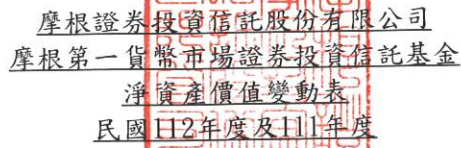 摩根證券投資信託股份有限公司
摩根第一貨幣市場證券投資信託基金
淨資產價值變動表
民國112年度及111年度